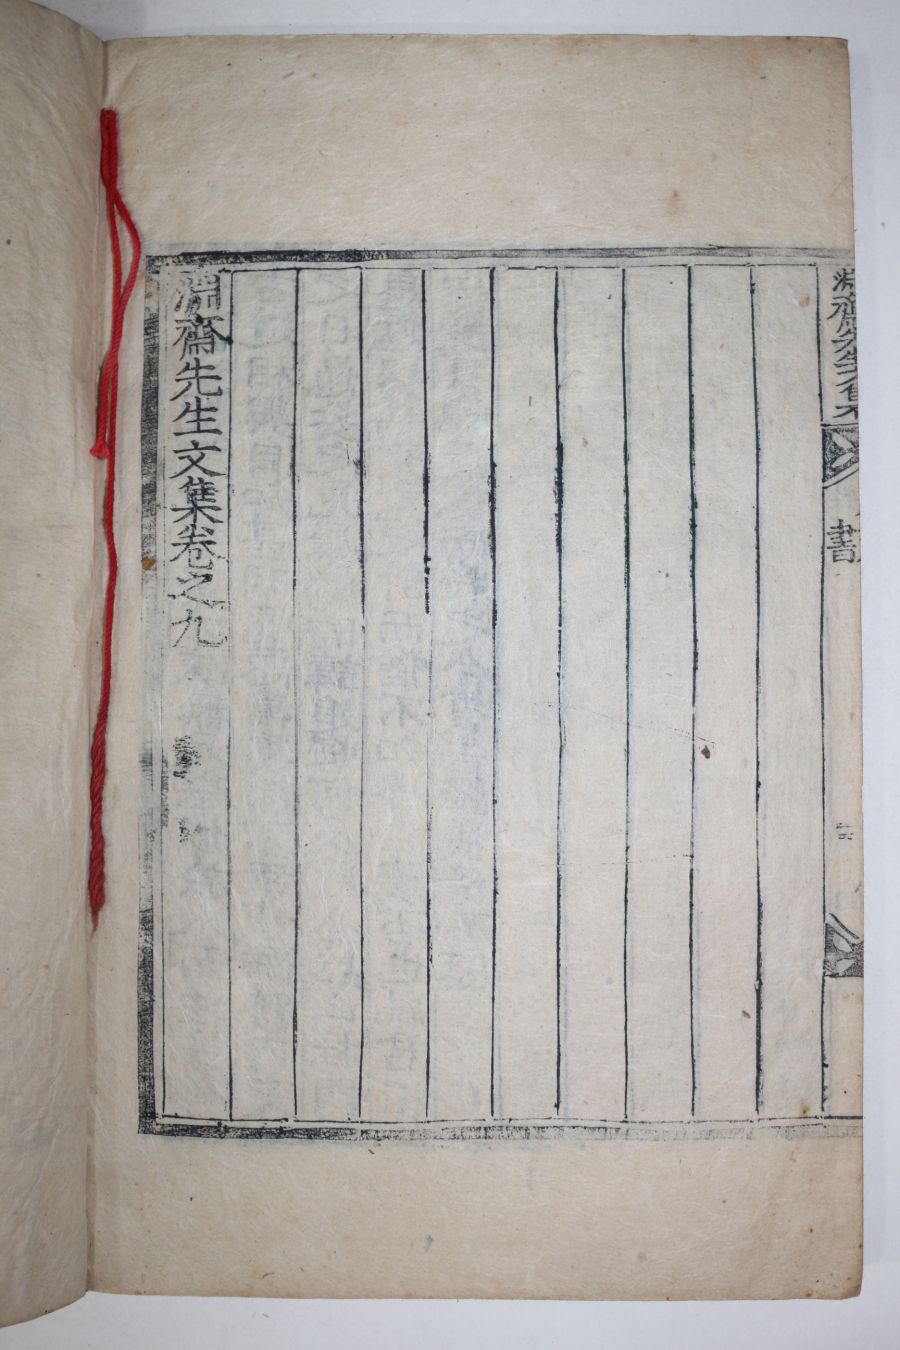 淵齋先生文集
書
淵齋先生文集卷之九